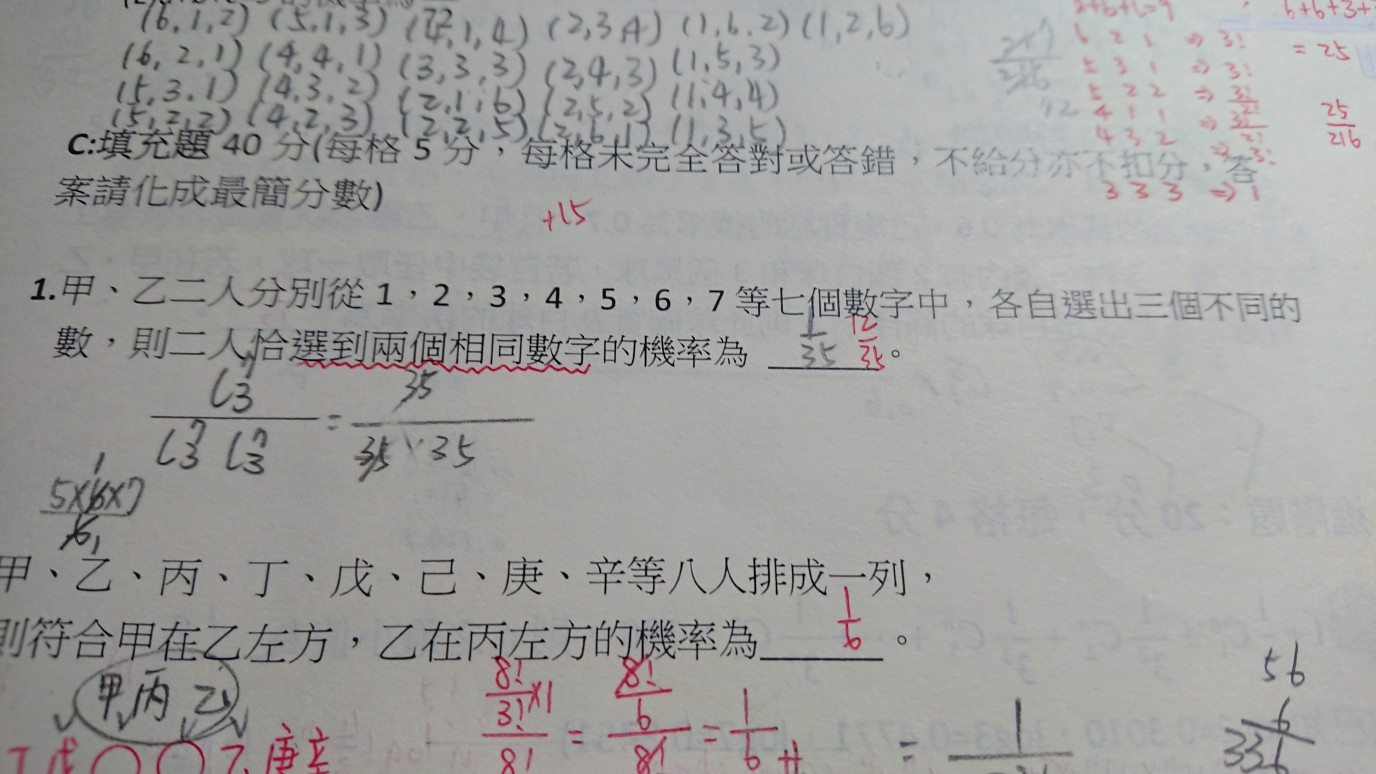 (6,1,2) (5,1,3) (4,1,4) (2,3,4) (1,6,2) (1,2,6)
(6,2,1) (4,4,1) (3,3,3) (2,4,3) (1,5,3)
(5,3,1) (4,3,2) (2,1,6) (2,5,2) (1,4,4)
(5,2,2) (4,2,3) (2,2,5) (2,6,1) (1,3,5)
6 2 1 ⇒ 3!
5 3 1 ⇒ 3!
5 2 2 ⇒ 3!/2!
4 4 1 ⇒ 3!/2!
4 3 2 ⇒ 3!
3 3 3 ⇒ 1
= 25
25/216
C:填充題 40 分(每格 5 分，每格未完全答對或答錯，不給分亦不扣分，答
案請化成最簡分數)
+15
1.甲、乙二人分別從 1，2，3，4，5，6，7 等七個數字中，各自選出三個不同的
數，則二人恰選到兩個相同數字的機率為 1/35 12/35。
C7 3 / C7 3 C7 3 = 35 / 35·35
5×6×7 / 6
甲、乙、丙、丁、戊、己、庚、辛等八人排成一列，
則符合甲在乙左方，乙在丙左方的機率為 1/6。
甲 丙 乙
8!/3! ×1 / 8!
8!/6 / 8! = 1/6
56
6
336